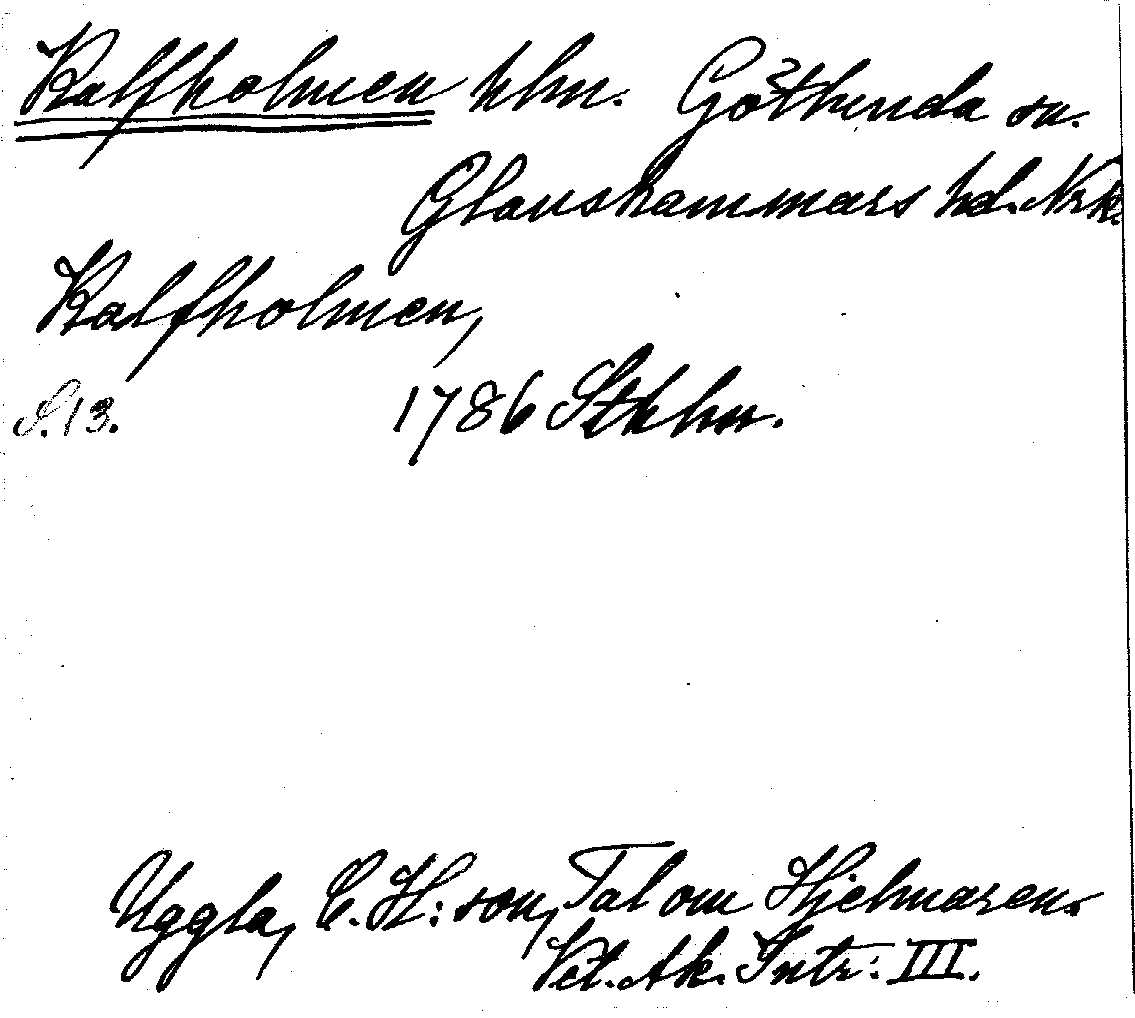 Kalfholmen hlm. Götlunda sn.
Glanshammars hd. Nrk.
Kalfholmen,
S. 13. 1786 Stkhm.
Uggla, C. H:son, Tal om Hjelmaren.
Vet. Ak. Intr: III.